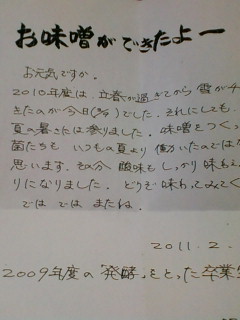 お味噌ができたよー
お元気ですか。
2010年度は、立春が過ぎてから雪がチ
きたのが今日(2/9)でした。それにしても
夏の暑さには参りました。味噌をつく
菌たちも いつもの夏より 働いたのでは
思います。その分 酸味も しっかり 味わえ
りになりました。どうぞ 味わってみてく
では では またね。
2011. 2.
2009年度の「発酵」をとった卒業生